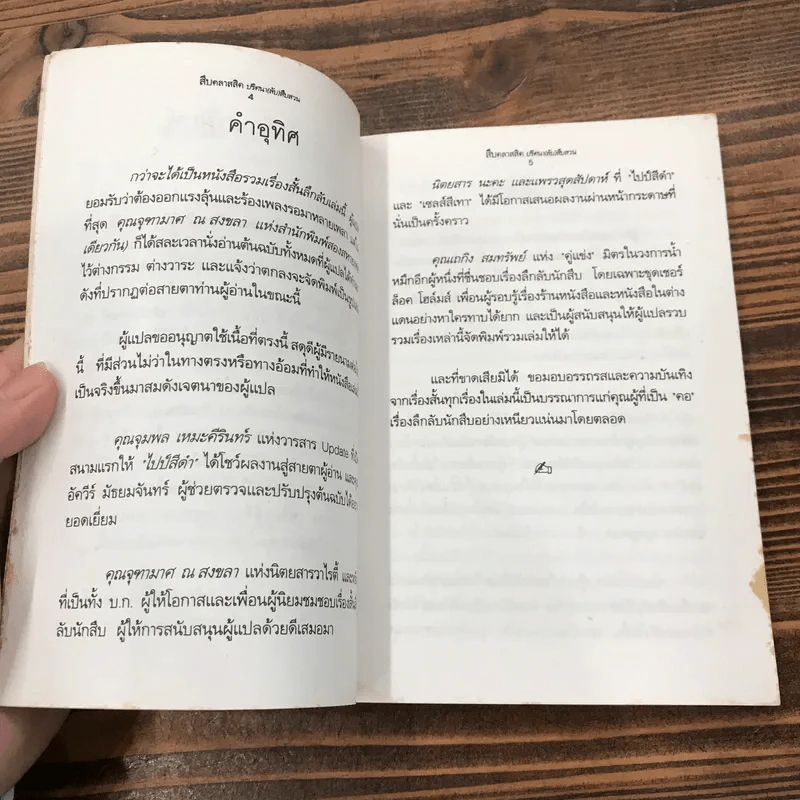 สืบคลาสสิค ปริศนา(ลับ)สืบสวน
4
คำอุทิศ
กว่าจะได้เป็นหนังสือรวมเรื่องสั้นลึกลับเล่มนี้
ยอมรับว่าต้องออกแรงลุ้นและร้องเพลงรอมาหลายเพลา
ที่สุด คุณจุฑามาศ ณ สงขลา แห่งสำนักพิมพ์สอง
เดียวกัน) ก็ได้สละเวลานั่งอ่านต้นฉบับทั้งหมดที่ผู้แปลได้
ไว้ต่างกรรม ต่างวาระ และแจ้งว่าตกลงจะจัดพิมพ์เป็น
ดังที่ปรากฏต่อสายตาท่านผู้อ่านในขณะนี้
ผู้แปลขออนุญาตใช้เนื้อที่ตรงนี้ สดุดีผู้มีรายนาม
นี้ ที่มีส่วนไม่ว่าในทางตรงหรือทางอ้อมที่ทำให้หนังสือ
เป็นจริงขึ้นมาสมดังเจตนาของผู้แปล
คุณจุมพล เหมะคีรินทร์ แห่งวารสาร Update
สนามแรกให้ "ไปป์สีดำ" ได้โชว์ผลงานสู่สายตาผู้อ่าน
อัควีร์ มัธยมจันทร์ ผู้ช่วยตรวจและปรับปรุงต้นฉบับได้
ยอดเยี่ยม
คุณจุฑามาศ ณ สงขลา แห่งนิตยสารวาไรตี้
ที่เป็นทั้ง บ.ก. ผู้ให้โอกาสและเพื่อนผู้นิยมชมชอบเรื่องสั้น
ลับนักสืบ ผู้ให้การสนับสนุนผู้แปลด้วยดีเสมอมา
สืบคลาสสิค ปริศนา(ลับ)สืบสวน
5
นิตยสาร นะคะ และแพรวสุดสัปดาห์ ที่ "ไปป์สีดำ"
และ "เซลส์สีเทา" ได้มีโอกาสเสนอผลงานผ่านหน้ากระดาษที่
นั่นเป็นครั้งคราว
คุณเถกิง สมทรัพย์ แห่ง "คู่แข่ง" มิตรในวงการน้ำ
หมึกอีกผู้หนึ่งที่ชื่นชอบเรื่องลึกลับนักสืบ โดยเฉพาะชุดเชอร์
ล็อค โฮล์มส์ เพื่อนผู้รอบรู้เรื่องร้านหนังสือและหนังสือในต่าง
แดนอย่างหาใครทาบได้ยาก และเป็นผู้สนับสนุนให้ผู้แปลรวบ
รวมเรื่องเหล่านี้จัดพิมพ์รวมเล่มให้ได้
และที่ขาดเสียมิได้ ขอมอบอรรถรสและความบันเทิง
จากเรื่องสั้นทุกเรื่องในเล่มนี้เป็นบรรณาการแก่คุณผู้ที่เป็น "คอ"
เรื่องลึกลับนักสืบอย่างเหนียวแน่นมาโดยตลอด